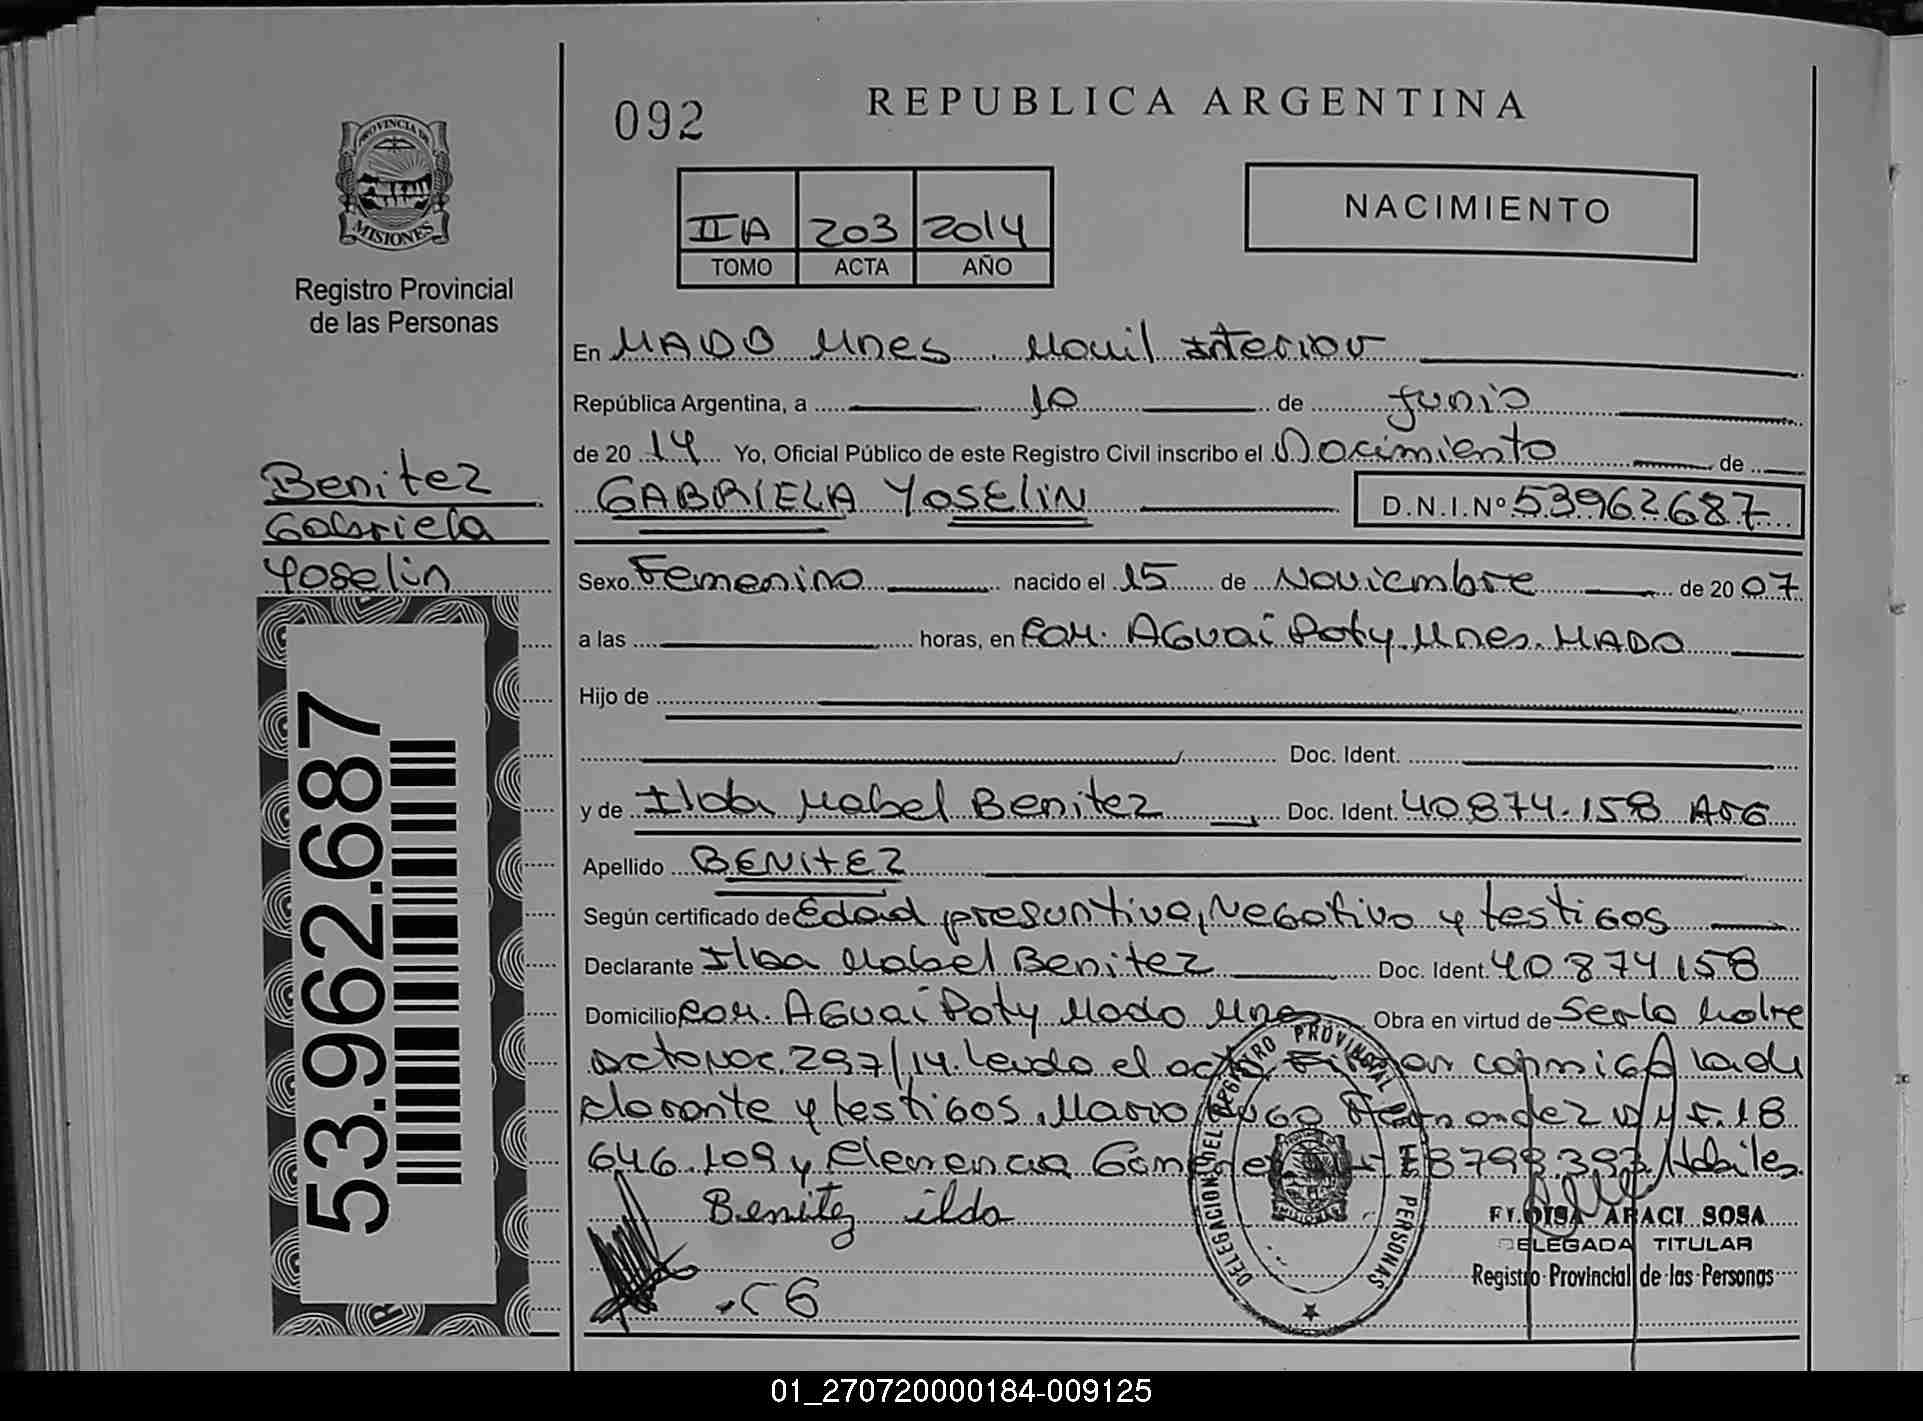 092
REPUBLICA ARGENTINA
PROVINCIA DE
MISIONES
Registro Provincial
de las Personas
IIA 203 2014
TOMO ACTA AÑO
NACIMIENTO
En MADO Mnes. Movil Interior
República Argentina, a 10 de junio
de 20 14 Yo, Oficial Público de este Registro Civil inscribo el Nacimiento de
GABRIELA YOSELIN D.N.I.Nº 53962687
Benitez
Gabriela
Yoselin
Sexo Femenino nacido el 15 de Noviembre de 20 07
a las horas, en Com. Aguai Poty Mnes. MADO
Hijo de
Doc. Ident.
y de Ilda Mabel Benitez Doc. Ident. 40.874.158 ARG
Apellido BENITEZ
Según certificado de Edad presuntiva, Negativo y testigos
Declarante Ilda Mabel Benitez Doc. Ident. 40.874.158
Domicilio Com. Aguai Poty Mado Mnes Obra en virtud de
297/14. Leida el acta Firman conmigo la de
clarante y testigos, Mario Hugo Fernandez 18
646.109 y Hábiles.
Benitez ilda
ELOISA ARACI SOSA
DELEGADA TITULAR
Registro Provincial de las Personas
C G
DELEGACION DEL REGISTRO PROVINCIAL DE LAS PERSONAS
MISIONES
53.962.687
01_270720000184-009125